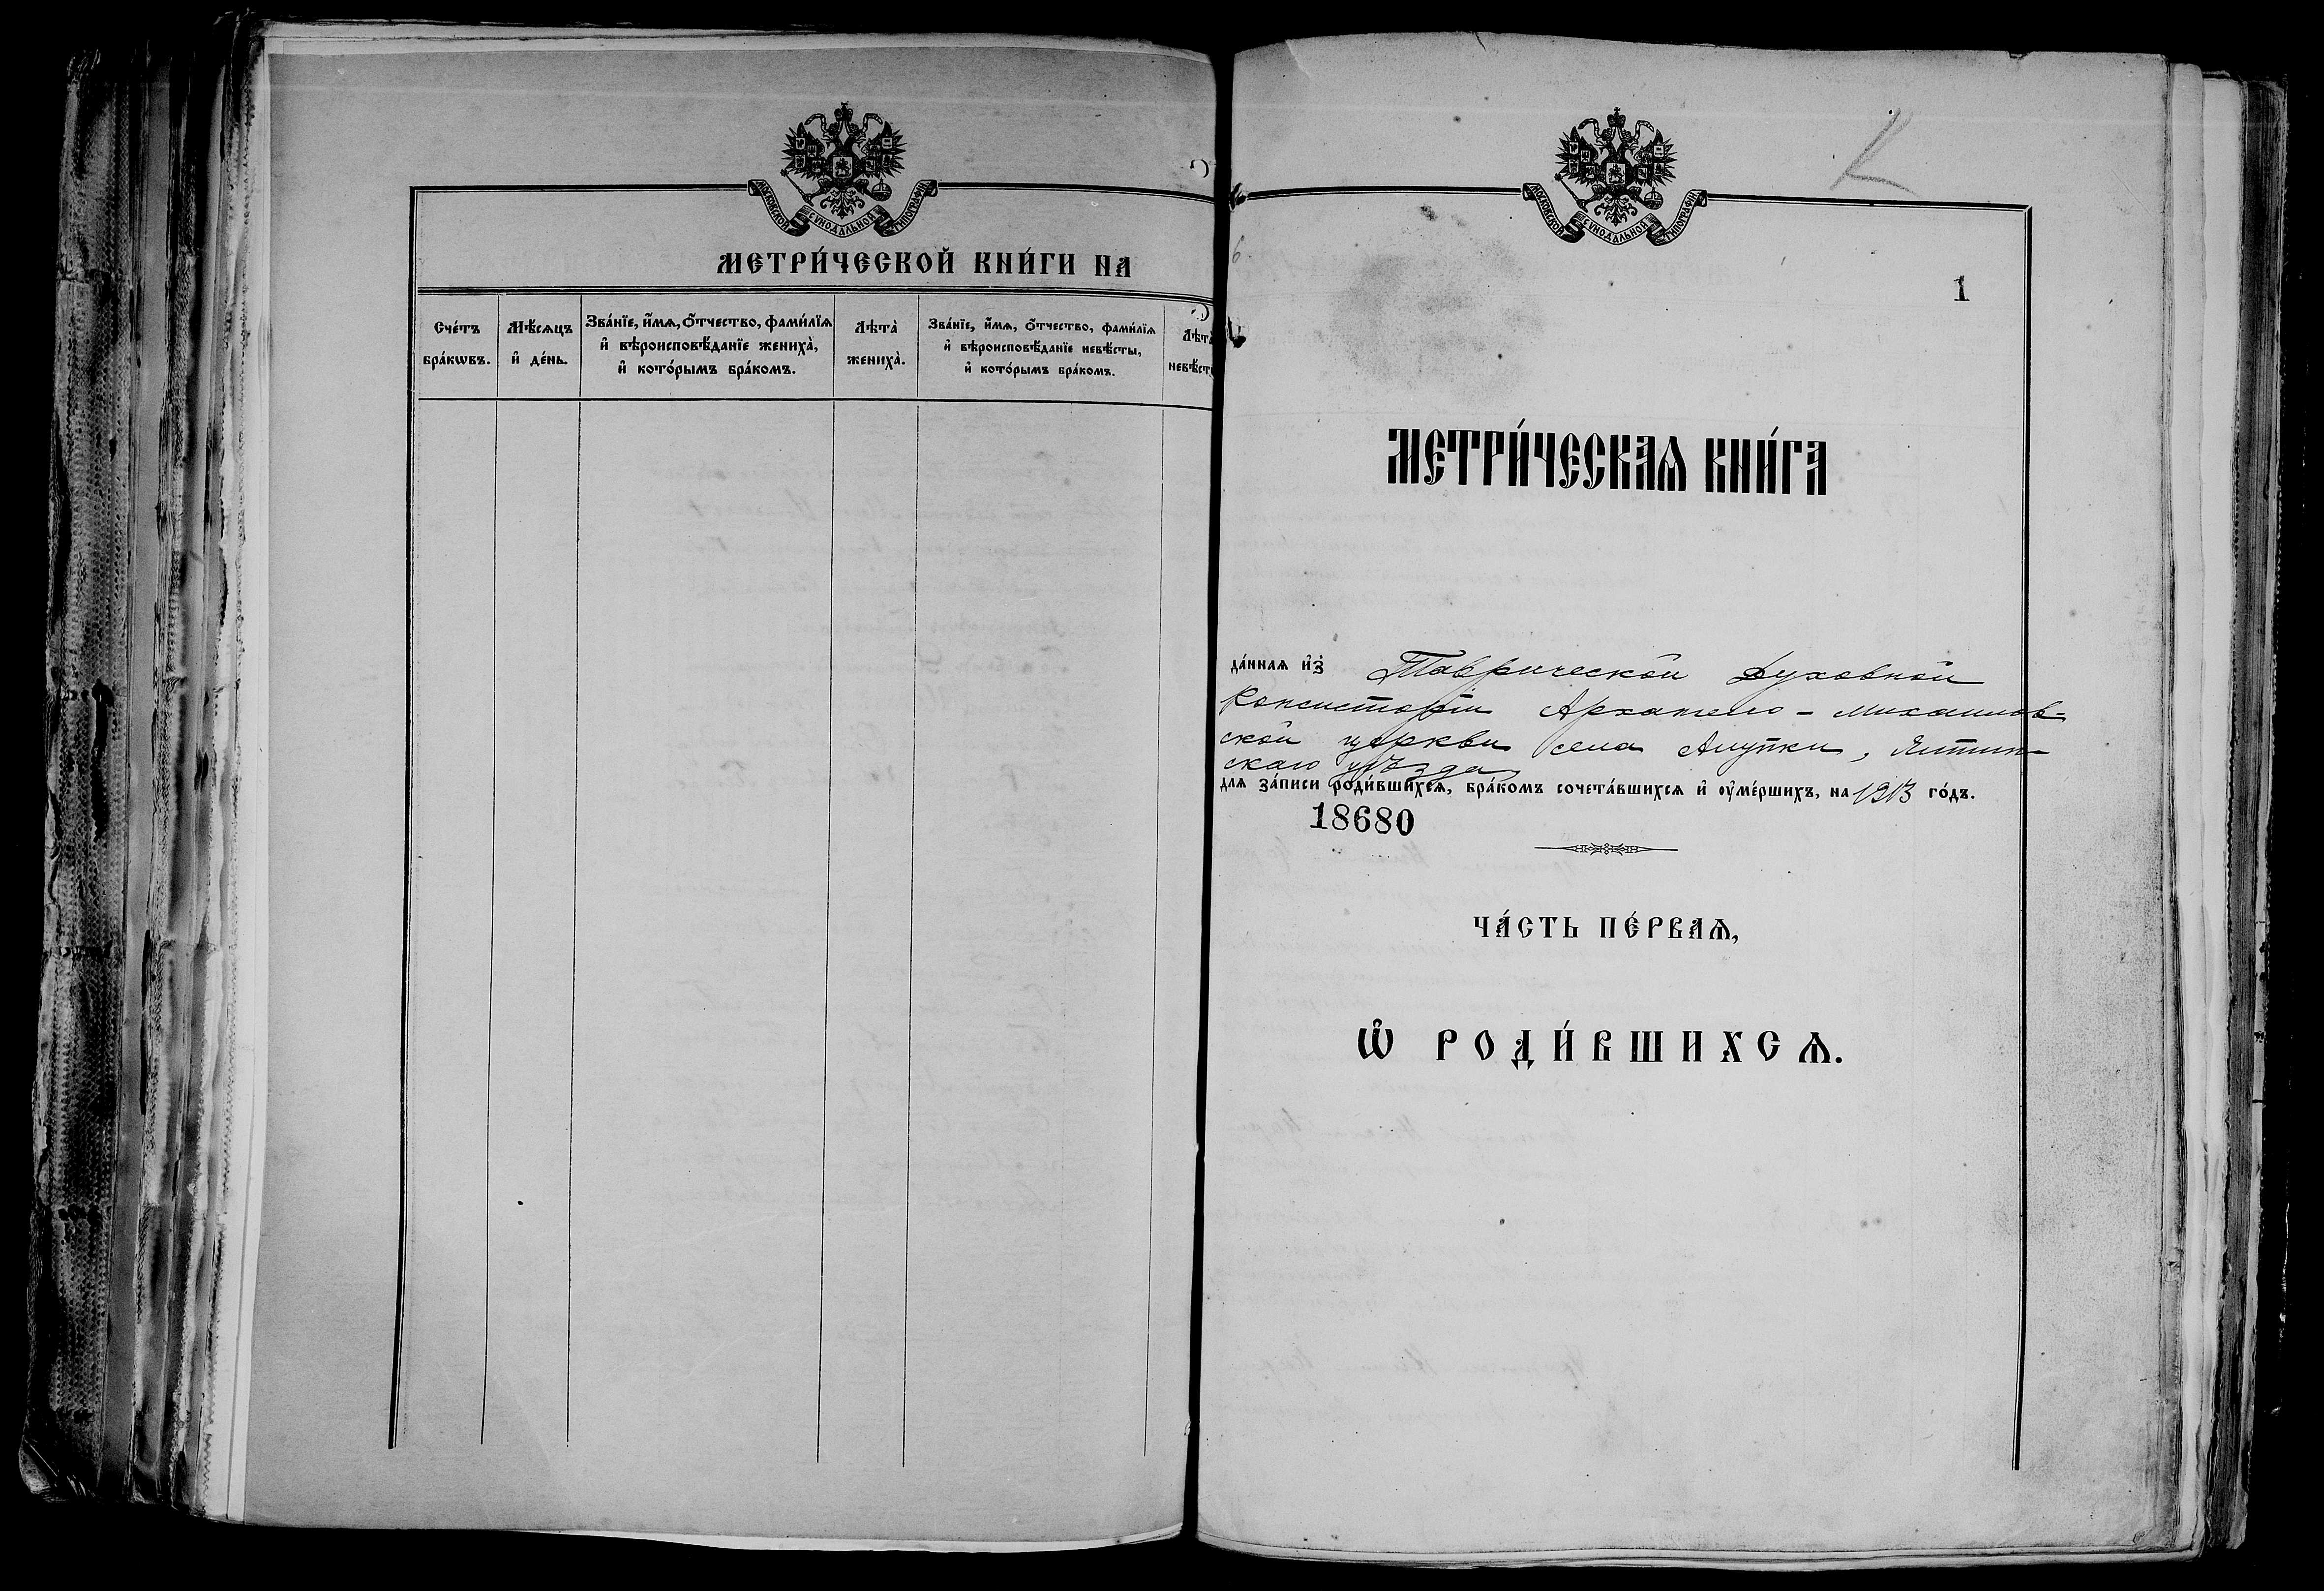 МОСКОВСКОЙ СѴНОДАЛЬНОЙ ТИПОГРАФІИ
МЕТРИ́ЧЕСКОЙ КНИ́ГИ НА
Сче́тъ
бра́кѡвъ.
Мѣ́сѧцъ
и҆ де́нь.
Зва́нїе, и҆́мѧ, ѻ҆́тчество, фами́лїѧ
и҆ вѣроисповѣ́данїе жениха̀,
и҆ кото́рымъ бра́комъ.
Лѣта̀
жениха̀.
Зва́нїе, и҆́мѧ, ѻ҆́тчество, фами́лїѧ
и҆ вѣроисповѣ́данїе невѣ́сты,
и҆ кото́рымъ бра́комъ.
Лѣта̀
невѣ́ст
МОСКОВСКОЙ СѴНОДАЛЬНОЙ ТИПОГРАФІИ
1
МЕТРИ́ЧЕСКАѦ КНИ́ГА
да́нная и҆з̾ Таврической Духовной
Консисторіи Архангело-Михаилов-
ской церкви села Алупки, Ялтин-
скаго уѣзда
для за́писи роди́вшихсѧ, бра́комъ сочета́вшихсѧ и҆ ᲂу҆ме́ршихъ, на 1913 го́дъ.
18680
ЧА́СТЬ ПЕ́РВАѦ,
Ѡ҆ РОДИ́ВШИХСѦ.